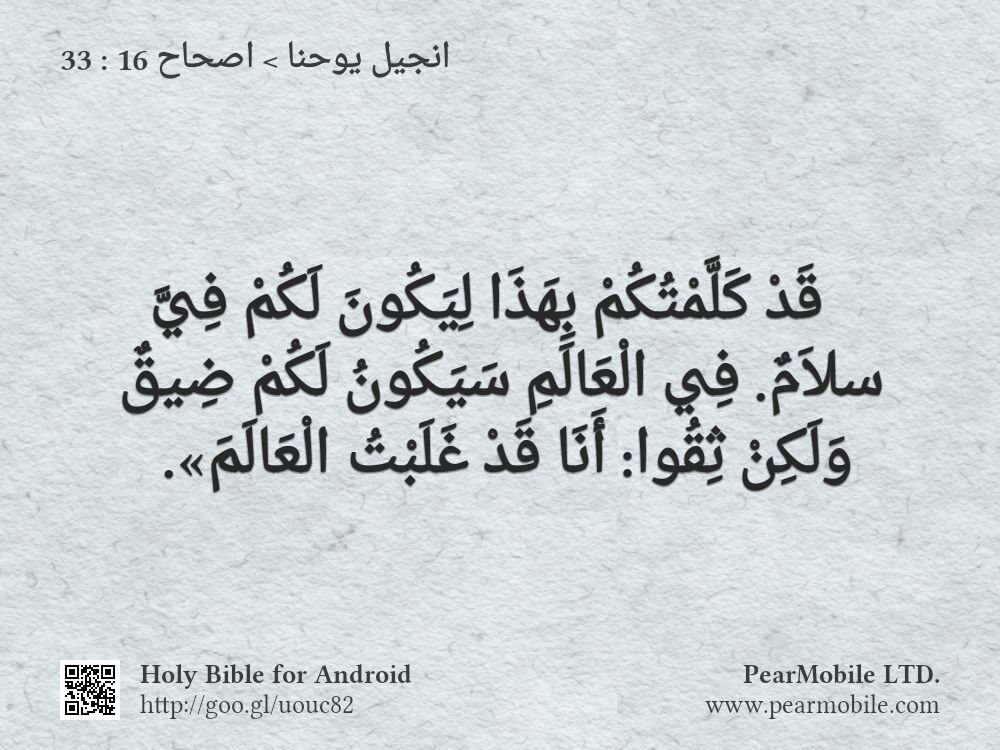 انجيل يوحنا > اصحاح 16 : 33
قَدْ كَلَّمْتُكُمْ بِهَذَا لِيَكُونَ لَكُمْ فِيَّ
سلاَمٌ. فِي الْعَالَمِ سَيَكُونُ لَكُمْ ضِيقٌ
وَلَكِنْ ثِقُوا: أَنَا قَدْ غَلَبْتُ الْعَالَمَ».
Holy Bible for Android
http://goo.gl/uouc82
PearMobile LTD.
www.pearmobile.com